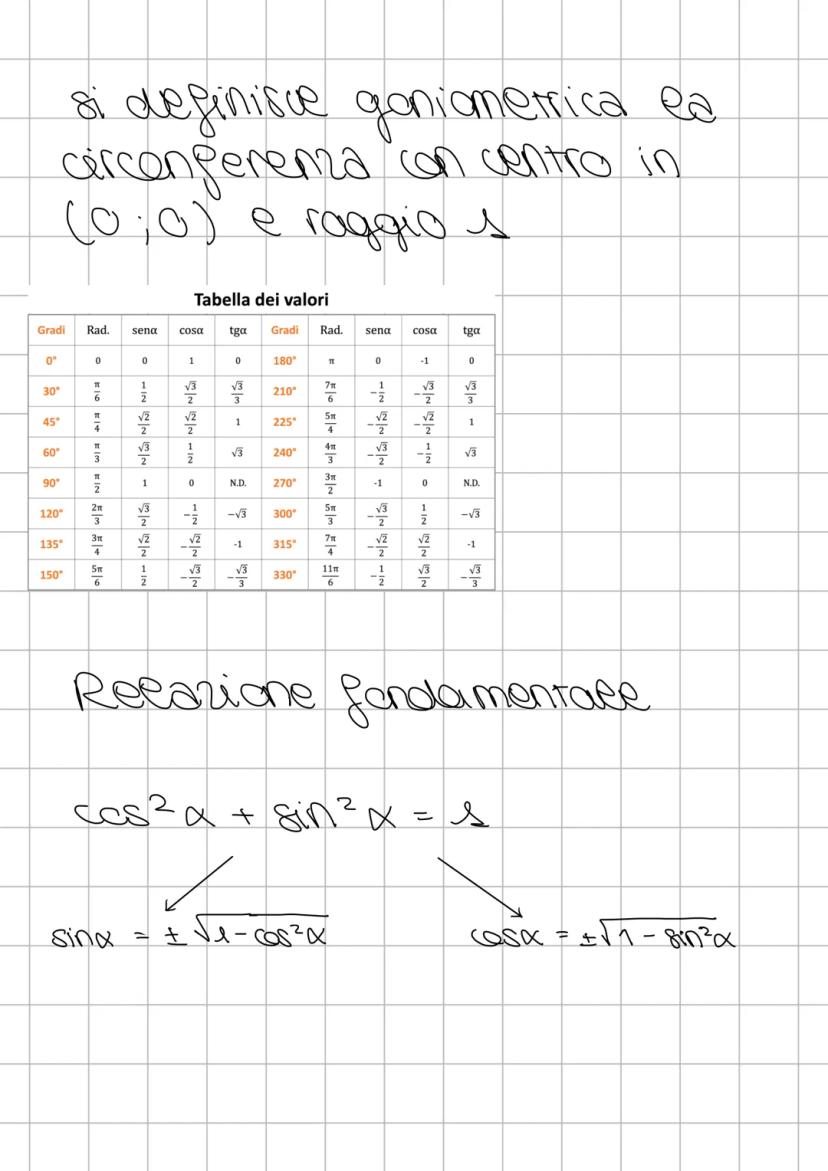 si definisce goniometrica la
circonferenza con centro in
(0;0) e raggio 1
Tabella dei valori
Gradi Rad. senα cosα tgα Gradi Rad. senα cosα tgα
0° 0 0 1 0 180° π 0 -1 0
30° π/6 1/2 √3/2 √3/3 210° 7π/6 -1/2 -√3/2 √3/3
45° π/4 √2/2 √2/2 1 225° 5π/4 -√2/2 -√2/2 1
60° π/3 √3/2 1/2 √3 240° 4π/3 -√3/2 -1/2 √3
90° π/2 1 0 N.D. 270° 3π/2 -1 0 N.D.
120° 2π/3 √3/2 -1/2 -√3 300° 5π/3 -√3/2 1/2 -√3
135° 3π/4 √2/2 -√2/2 -1 315° 7π/4 -√2/2 √2/2 -1
150° 5π/6 1/2 -√3/2 -√3/3 330° 11π/6 -1/2 √3/2 -√3/3
Relazione fondamentale
cos²α + sin²α = 1
sinα = ±√1-cos²α cosα = ±√1-sin²α